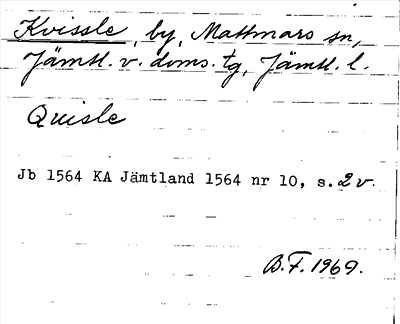 Kvissle, by, Mattmars sn,
Jämtl. v. doms. tg, Jämtl. l.
Quisle
Jb 1564 KA Jämtland 1564 nr 10, s. 2 v.
B.F. 1969.